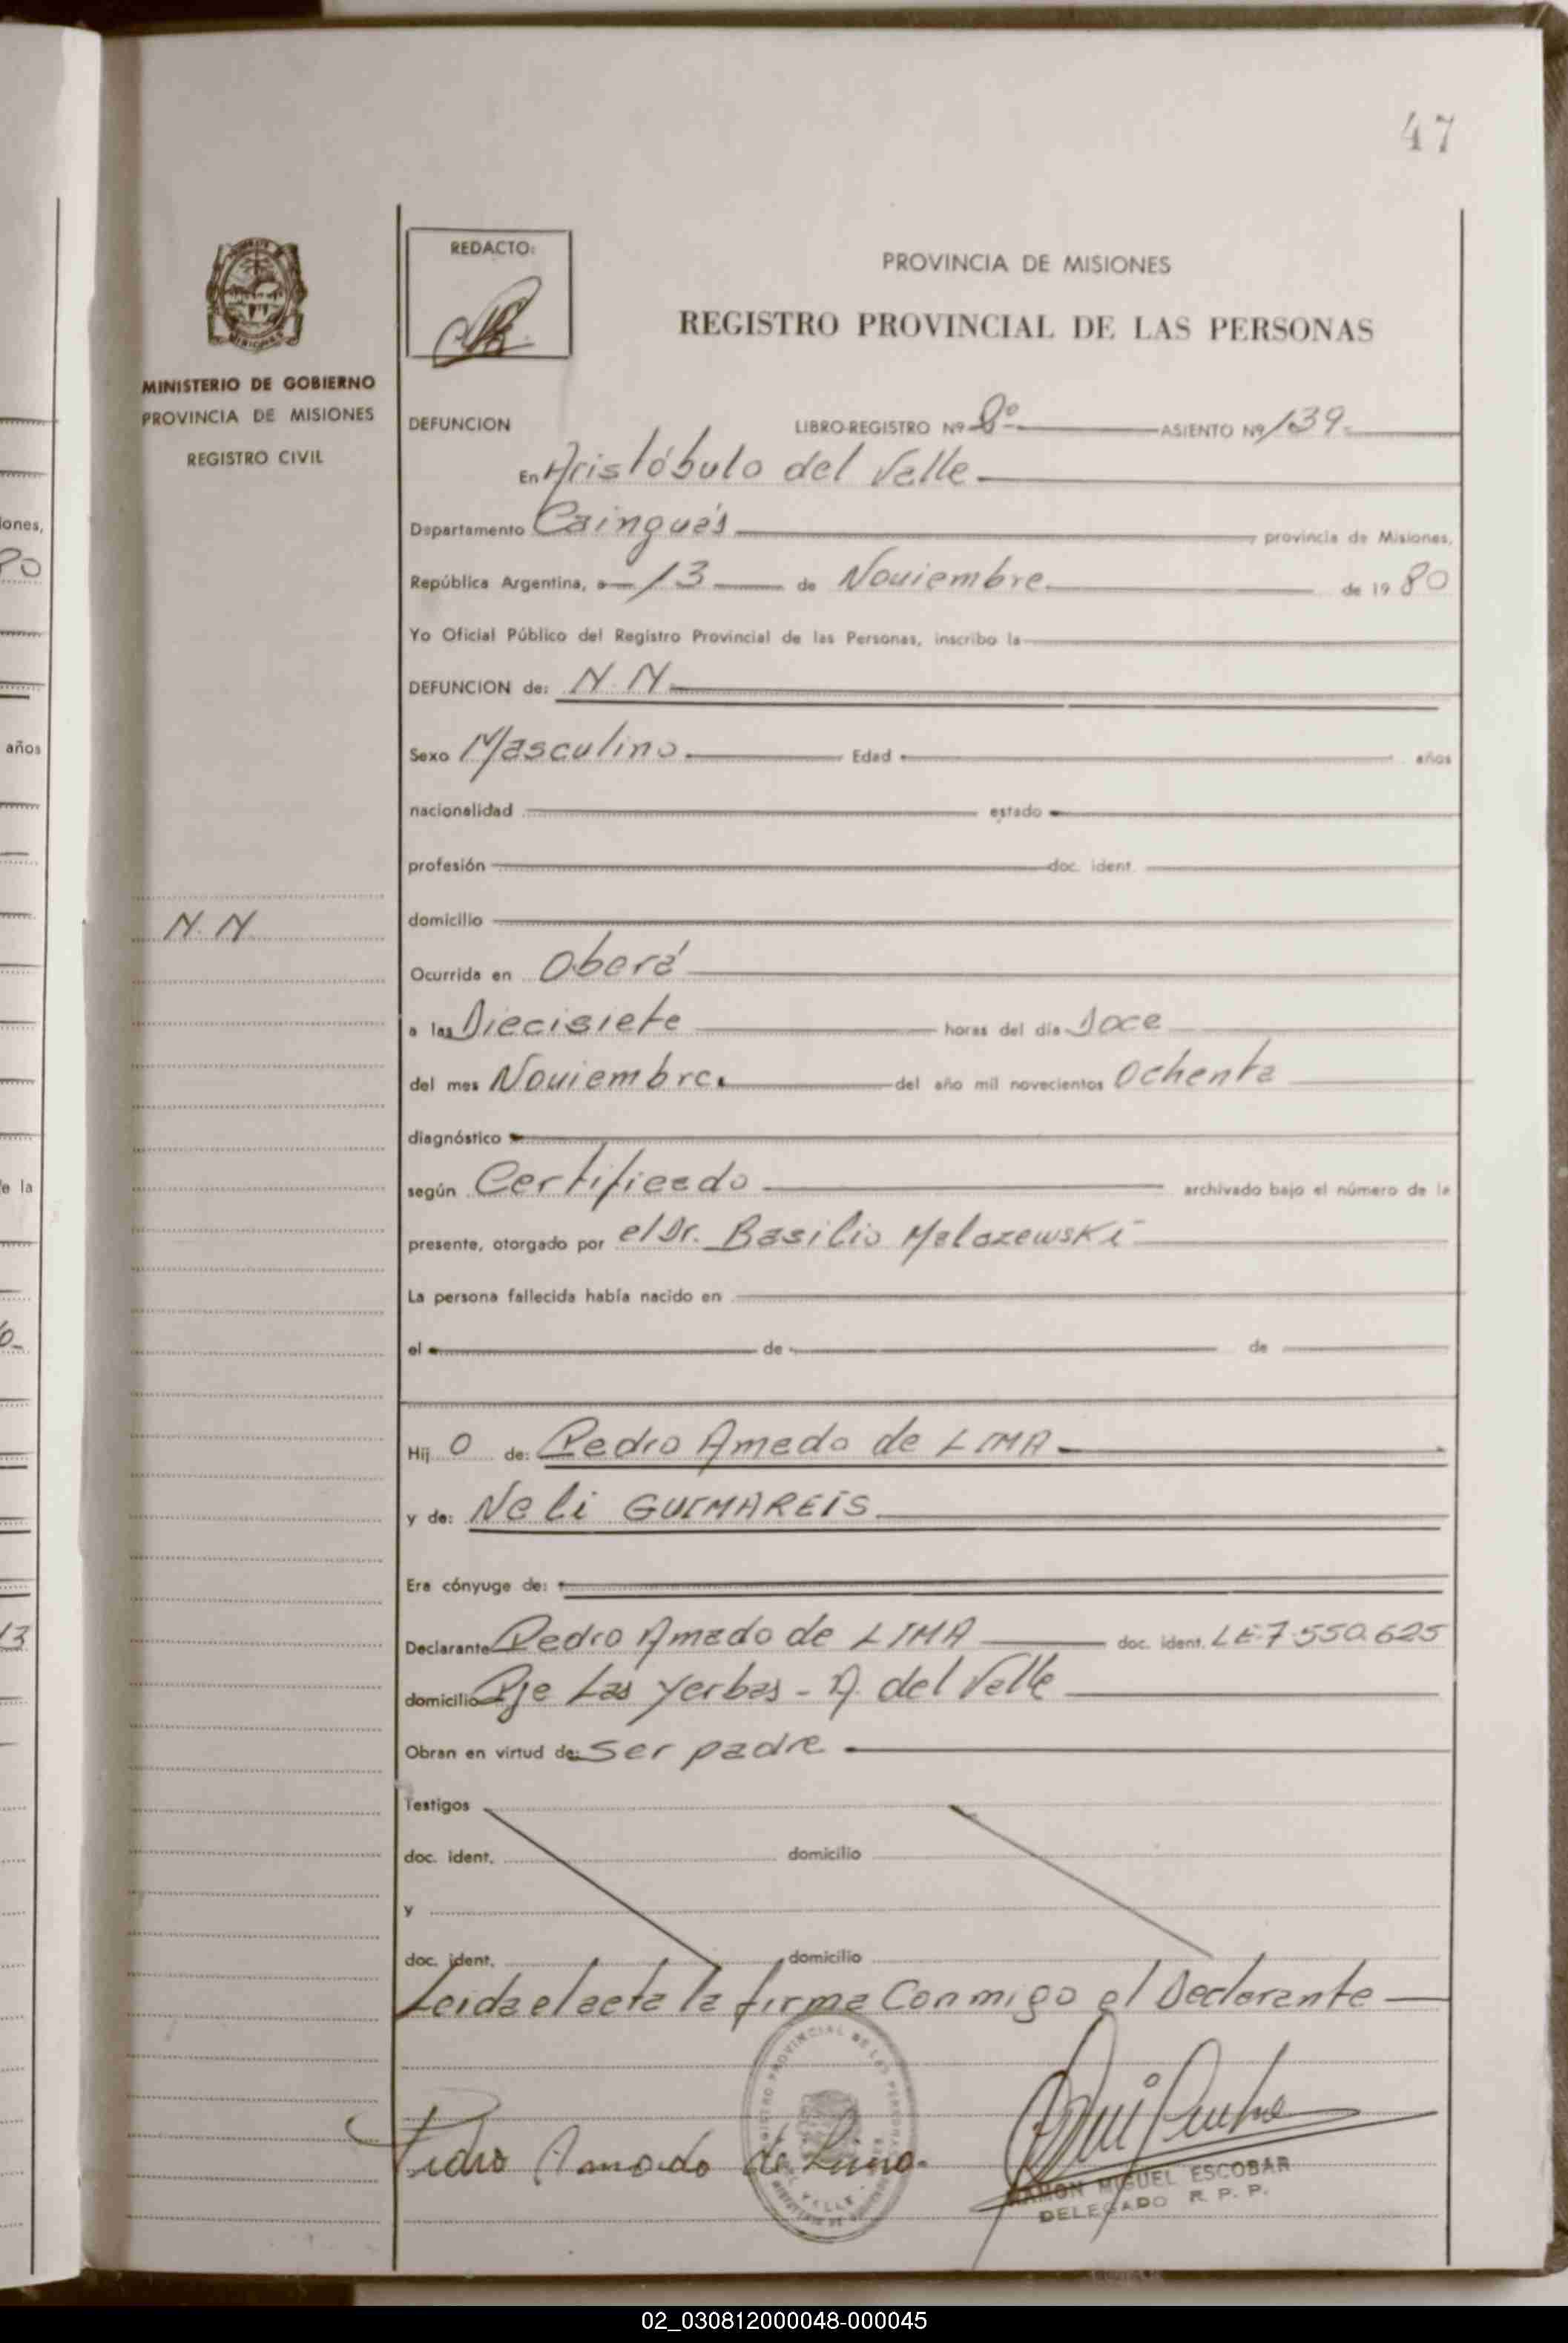 47
REDACTO:
PROVINCIA DE MISIONES
REGISTRO PROVINCIAL DE LAS PERSONAS
MINISTERIO DE GOBIERNO
PROVINCIA DE MISIONES
REGISTRO CIVIL
DEFUNCION LIBRO-REGISTRO Nº 8º ASIENTO Nº 139.
En Aristóbulo del Valle
Departamento Cainguás provincia de Misiones,
República Argentina, a 13 de Noviembre de 19 80
Yo Oficial Público del Registro Provincial de las Personas, inscribo la
DEFUNCION de: N. N
Sexo Masculino Edad años
nacionalidad estado
profesión doc. ident.
N. N
domicilio
Ocurrida en Oberá
a las Diecisiete horas del día Doce
del mes Noviembre. del año mil novecientos Ochenta
diagnóstico
según Certificado archivado bajo el número de la
presente, otorgado por el Dr. Basilio Malazewski
La persona fallecida había nacido en
el de de
Hij o de: Pedro Amado de LIMA
y de: Neli GUIMAREIS
Era cónyuge de:
Declarante Pedro Amado de LIMA doc. ident. LE-7.550.625
domicilio Pje Las Yerbas - A. del Valle
Obran en virtud de: Ser padre
Testigos
doc. ident. domicilio
y
doc. ident. domicilio
Leida el acta la firma Conmigo el Declarante
Pedro Amado de Lima.
RAMON MIGUEL ESCOBAR
DELEGADO R. P. P.
iones,
80
años
e la
13
02_030812000048-000045